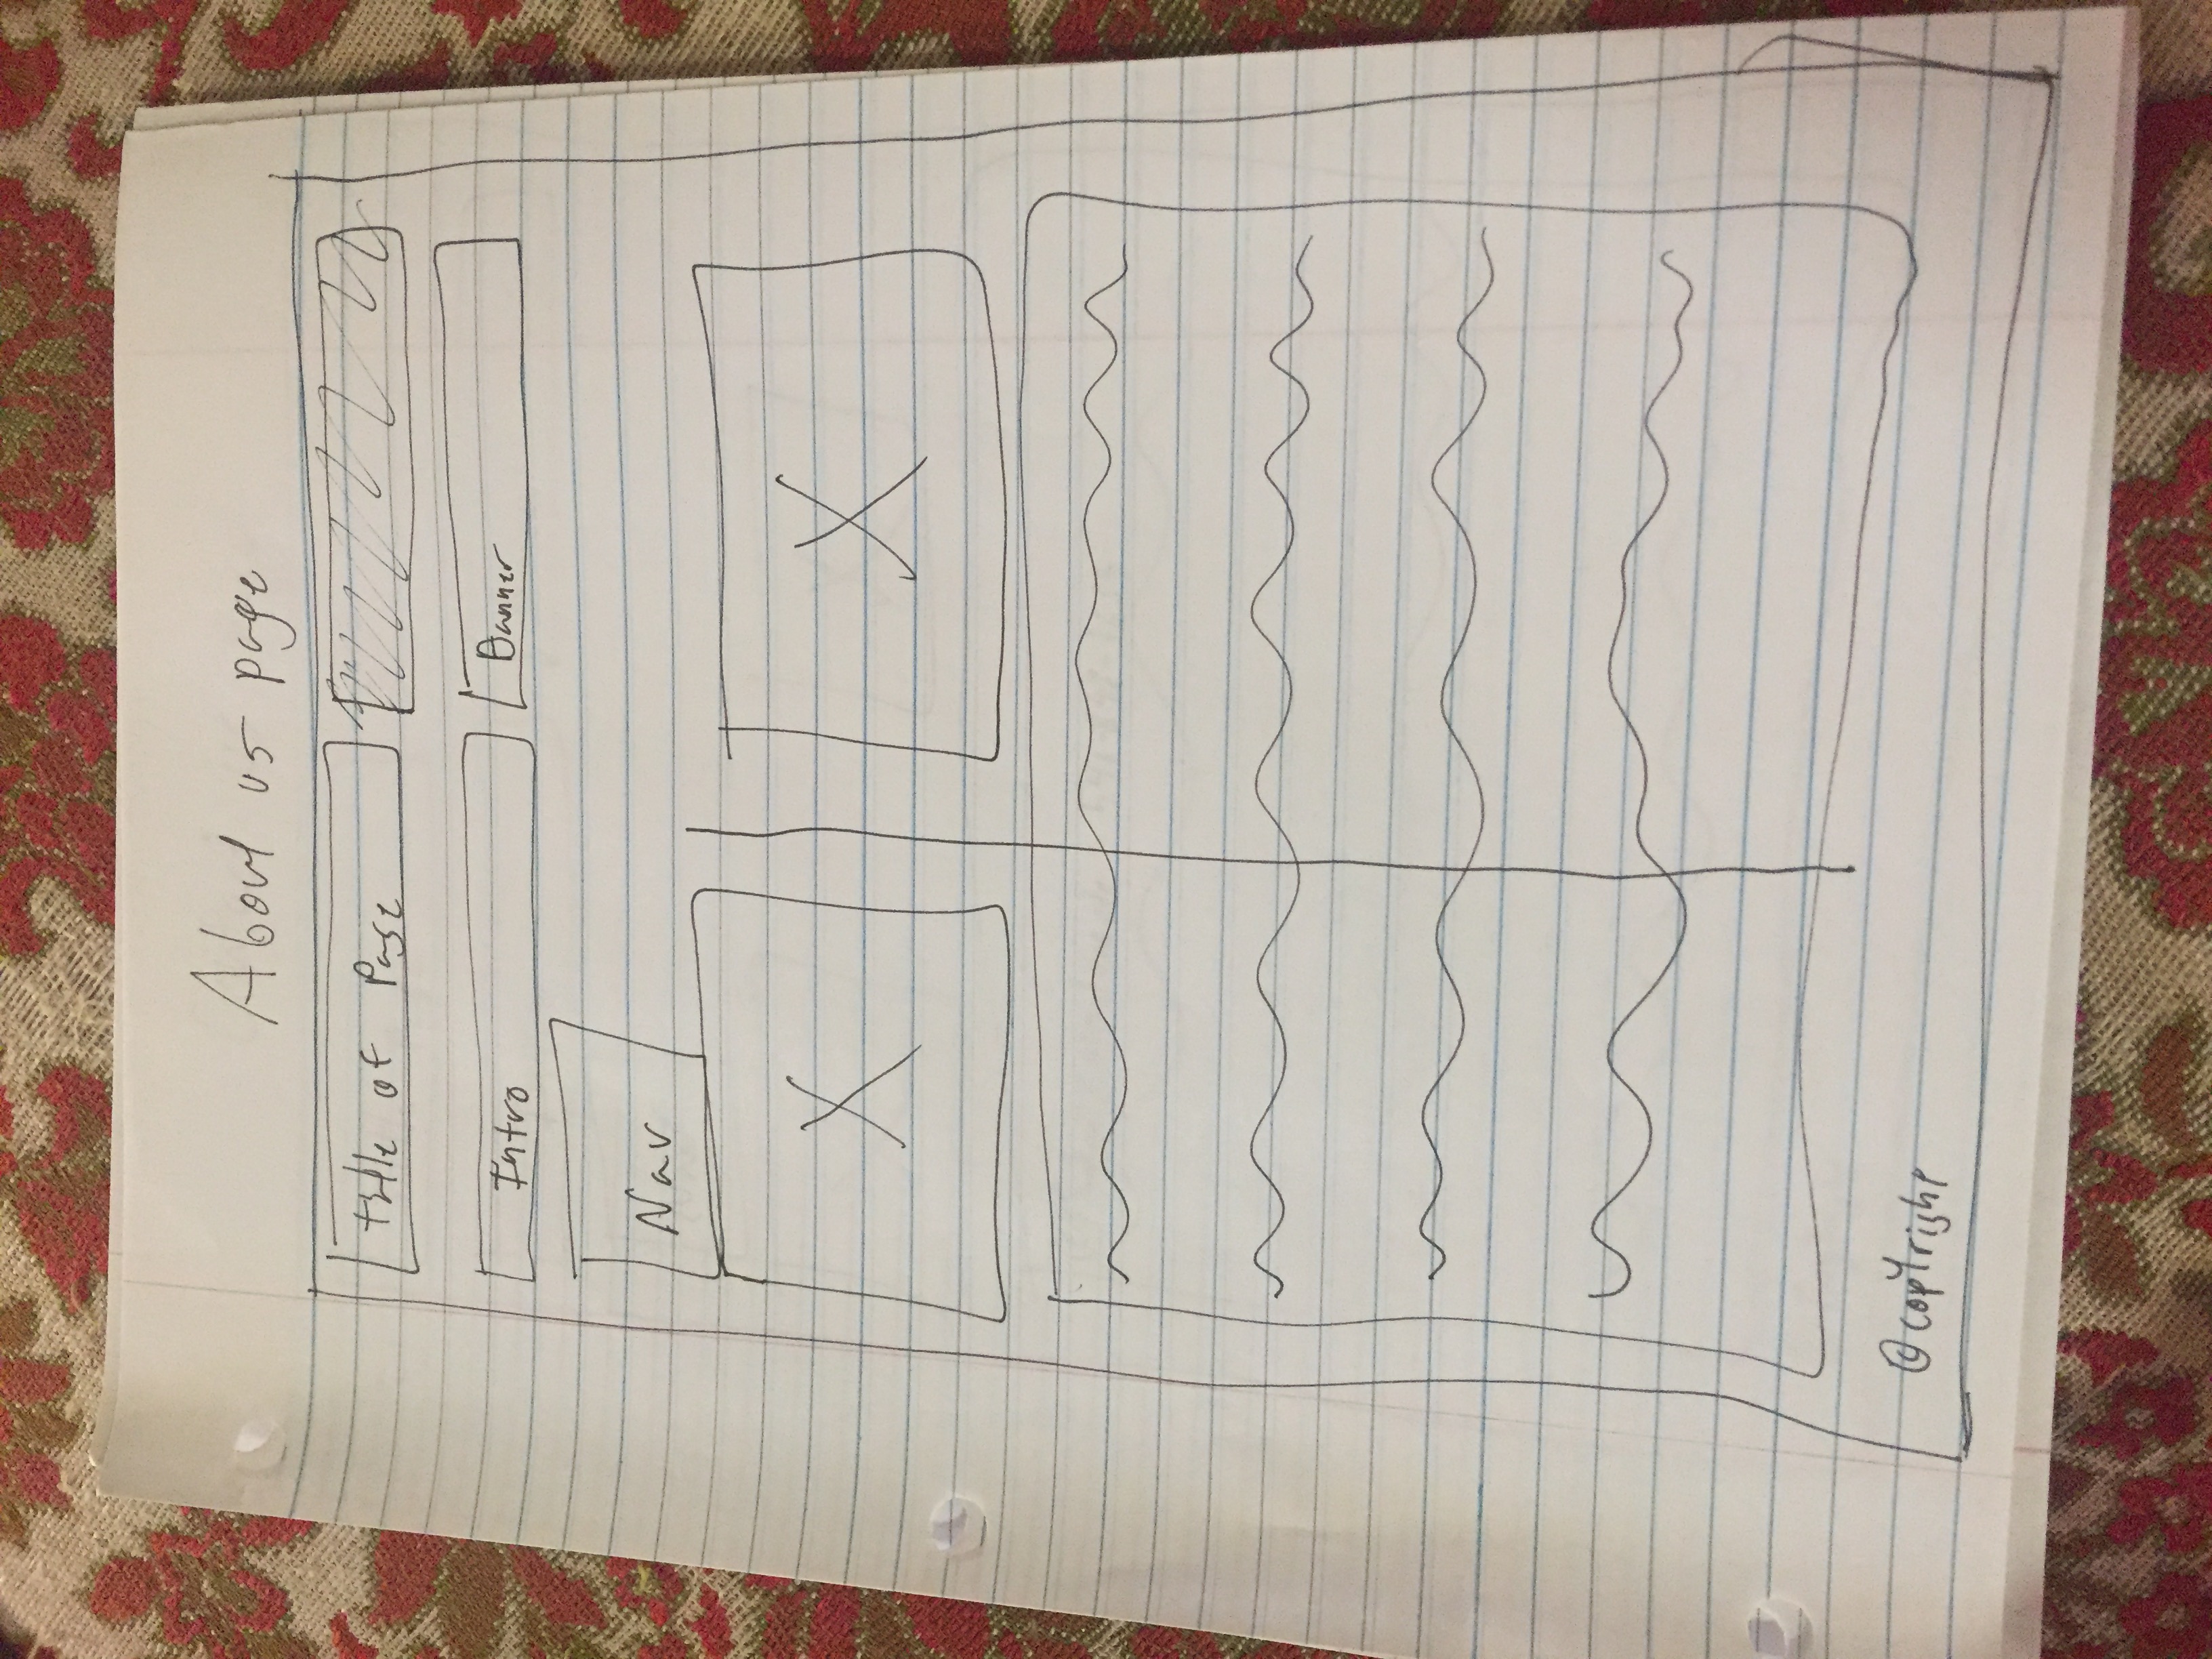 About us page
title of Page
Intro
Banner
Nav
X
X
©copyright